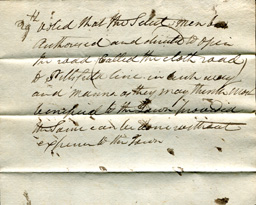 9th voted that the Select men be
Authorised and directed to open
the road Called the Cloth road
to line in such way
and manner as they may think most
beneficial to the Town provided
the Same can be done without
expence to the Town